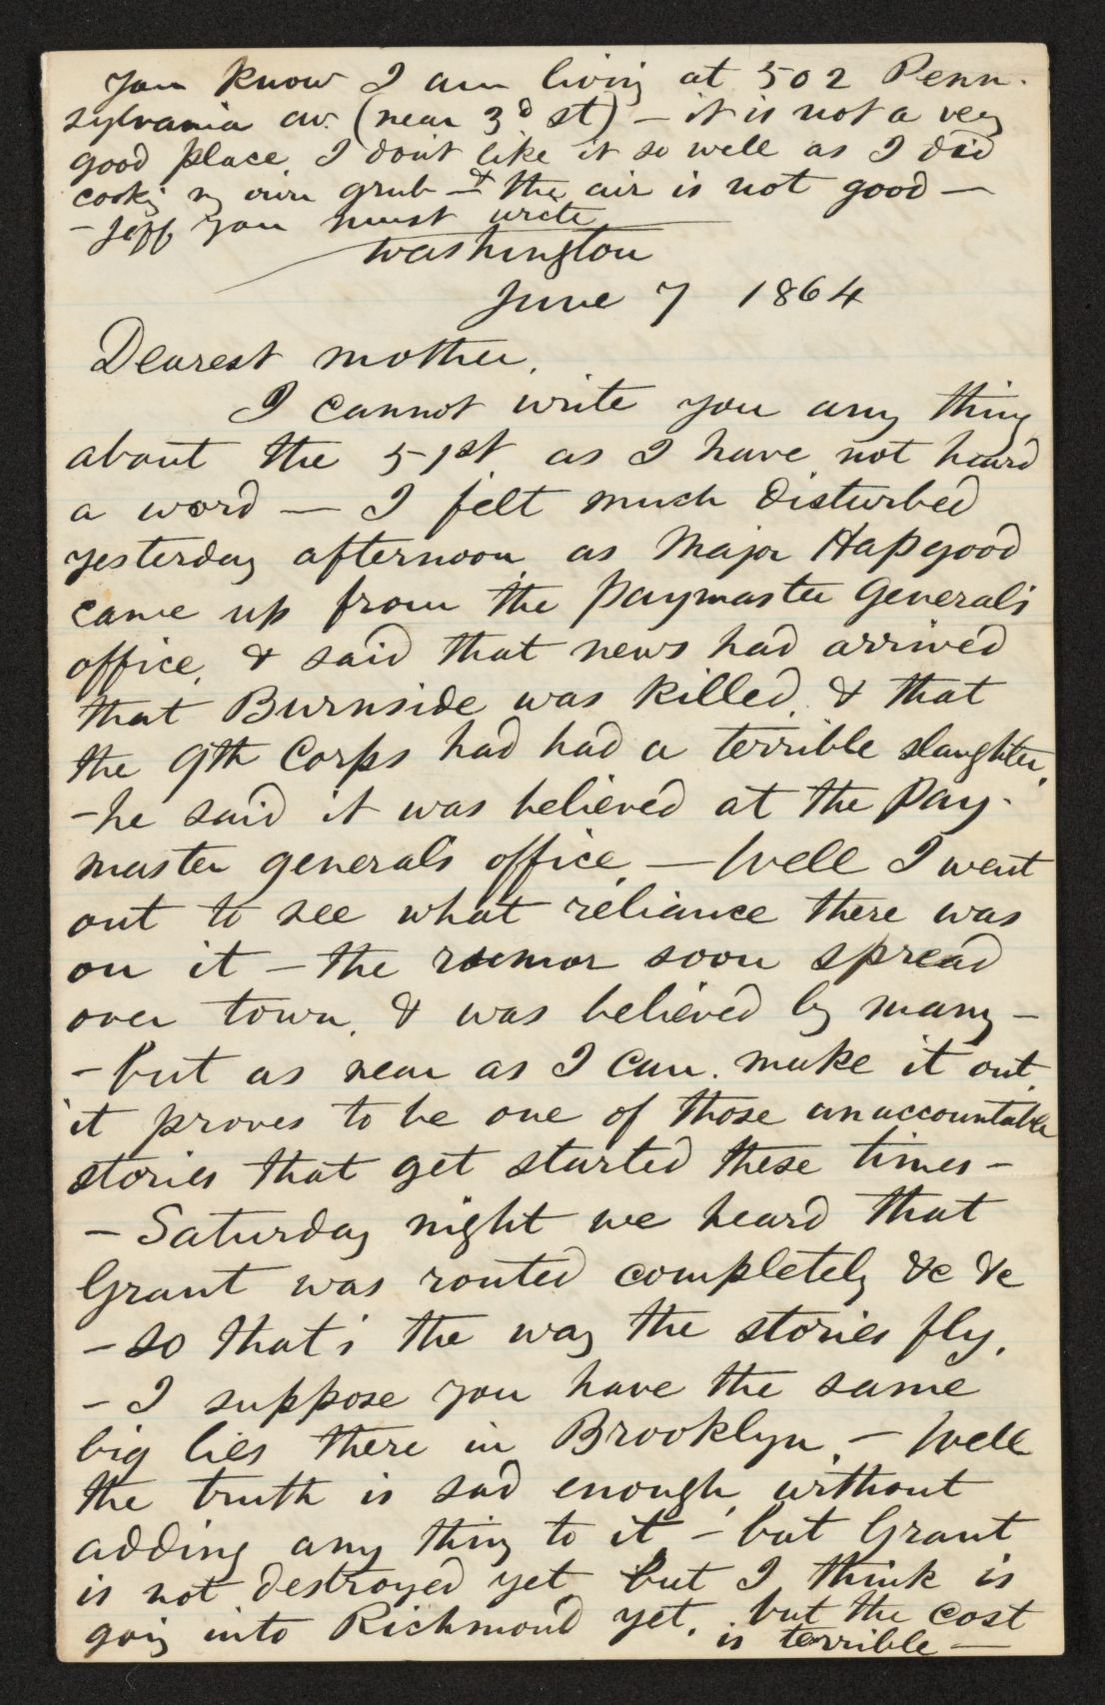 you know I am living at 502 Penn-
sylvania av. (near 3d st) — it is not a very
good place, I don't like it so well as I did
cooking my own grub — & the air is not good —
— Jeff you must write
Washington
June 7 1864
Dearest mother,
I cannot write you any thing
about the 51st, as I have not heard
a word — I felt much disturbed
yesterday afternoon, as Major Hapgood
came up from the Paymaster Generals
office, & said that news had arrived
that Burnside was killed, & that
the 9th Corps had had a terrible slaughter,
– he said it was believed at the Pay-
master generals office — Well I went
out to see what reliance there was
on it — the rumor soon spread
over town, & was believed by many —
— but as near as I can make it out,
it proves to be one of those unaccountable
stories that get started these times —
— Saturday night we heard that
Grant was routed completely &c &c
— so that's the way the stories fly,
— I suppose you have the same
big lies there in Brooklyn, — Well
the truth is sad enough, without
adding any thing to it — but Grant
is not destroyed yet, but I think is
going into Richmond yet, but the cost
is terrible —